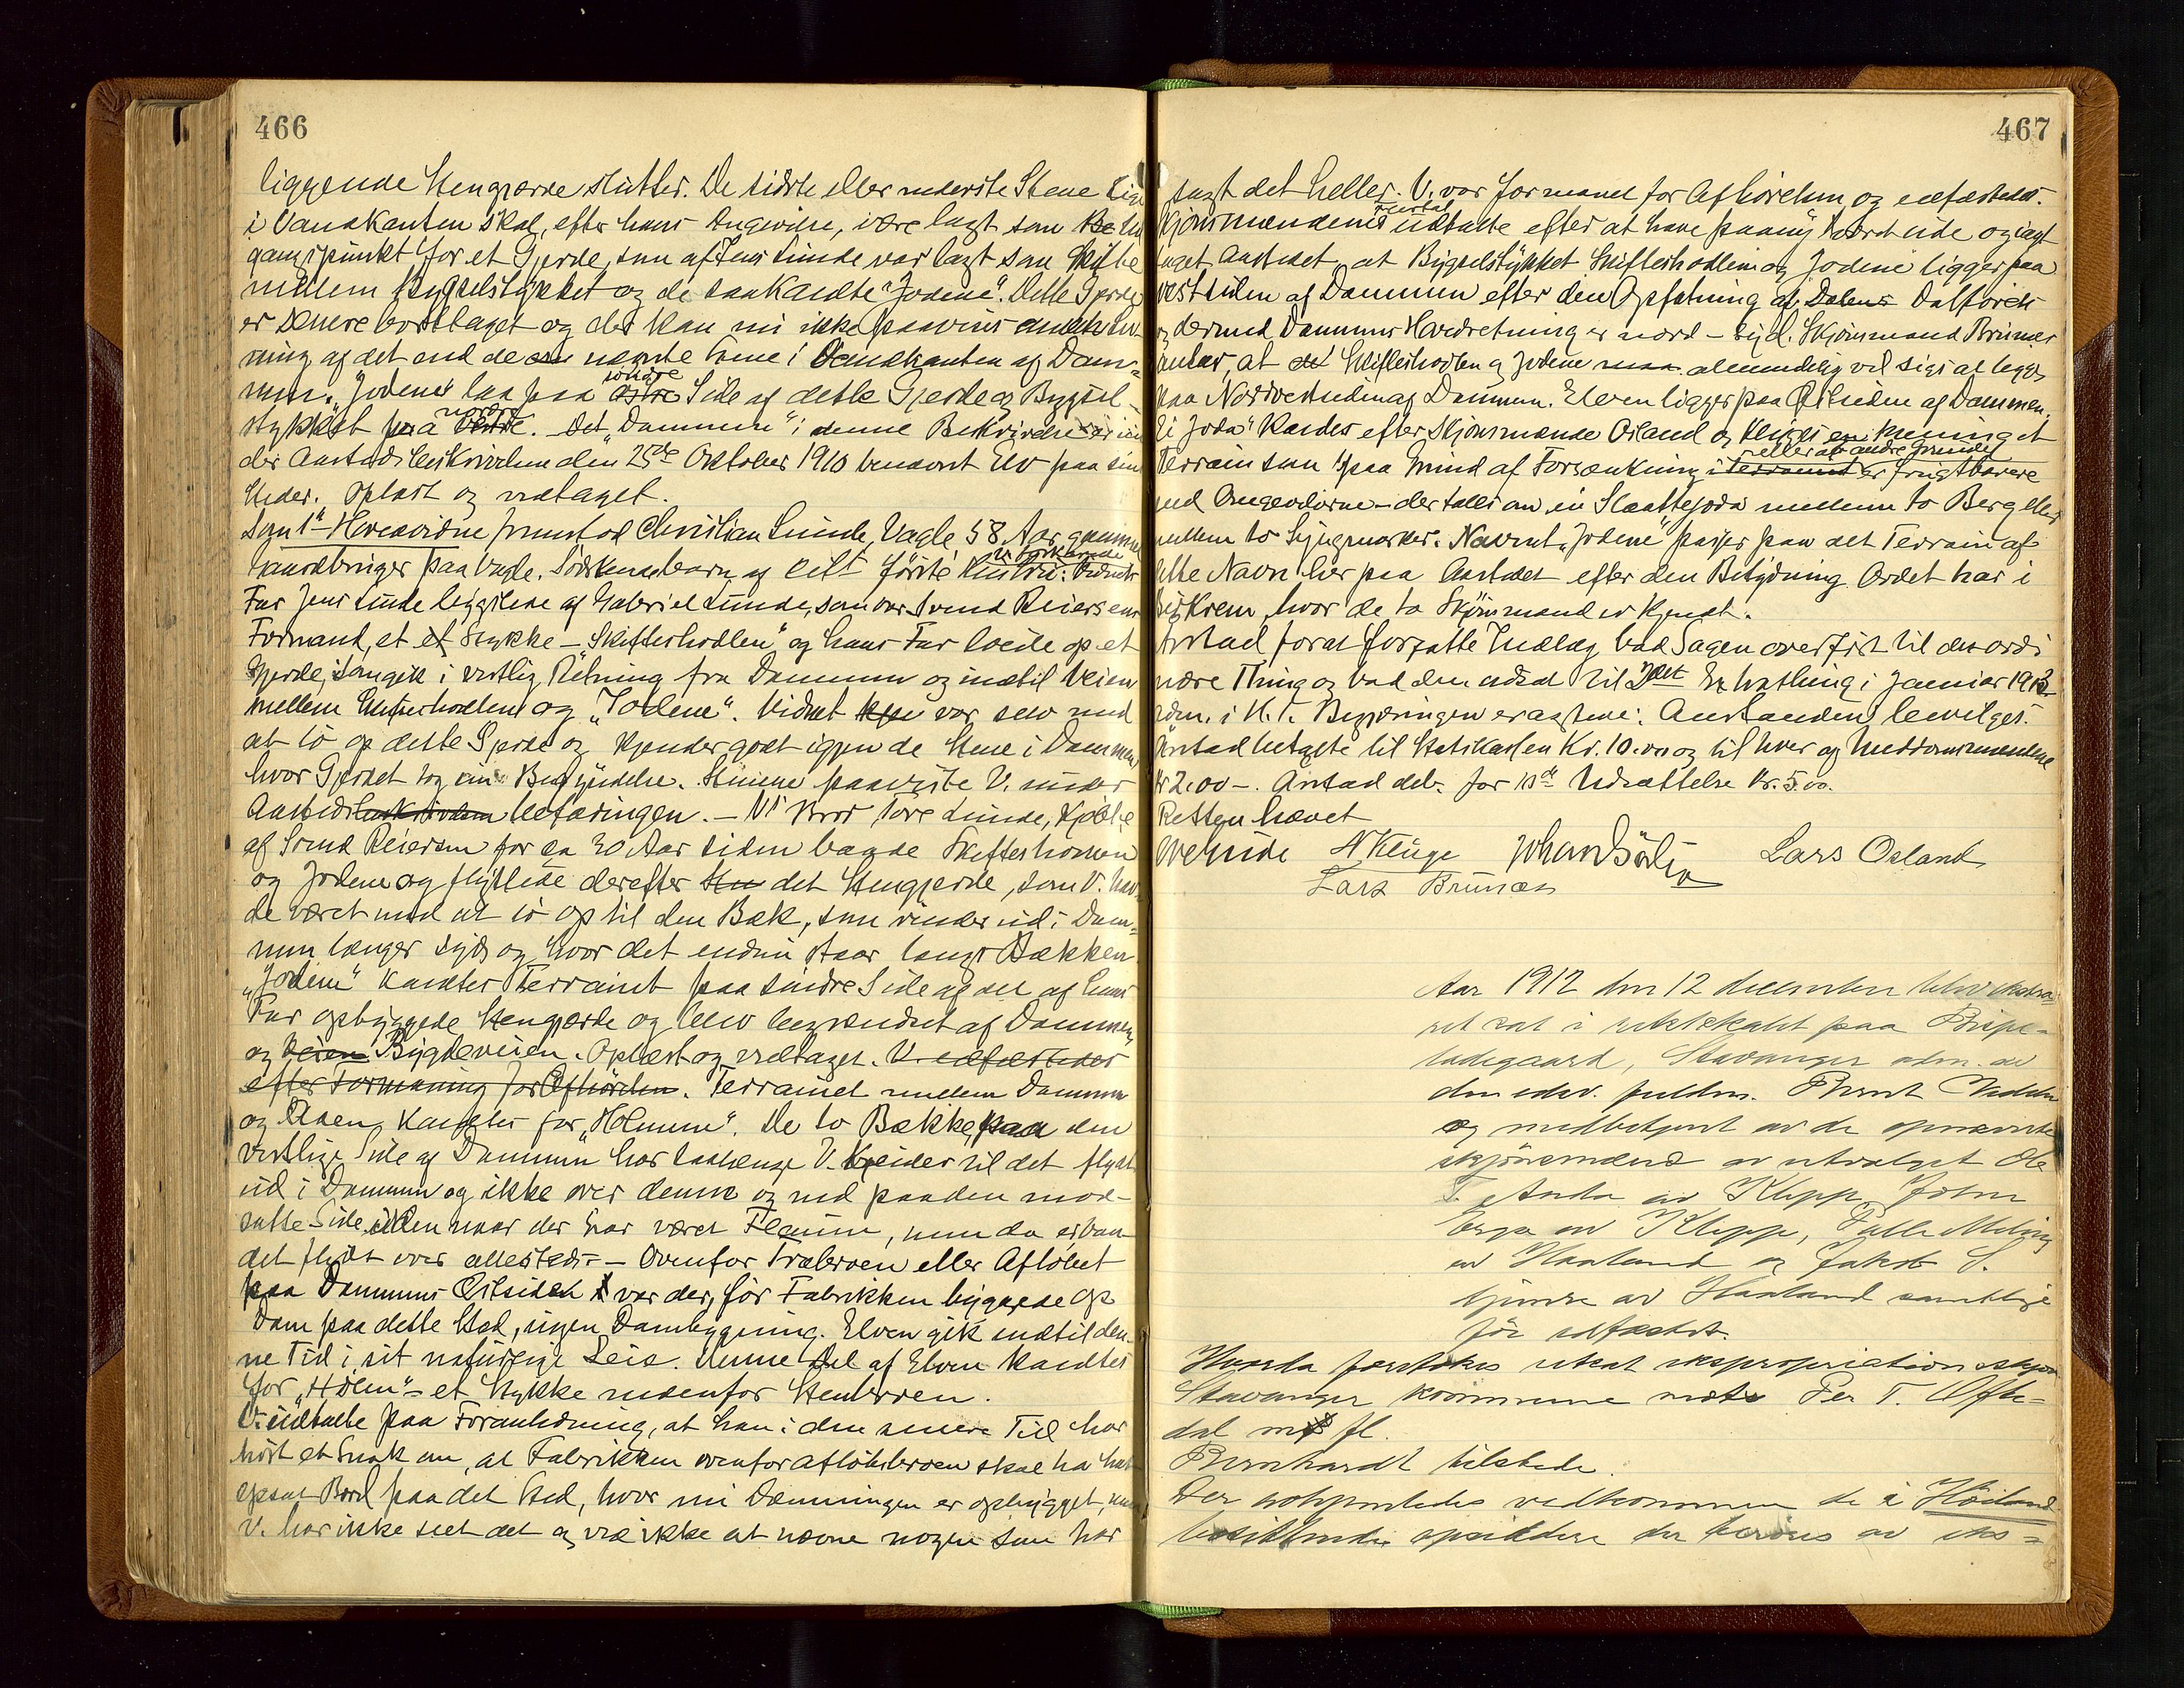 466
liggende Stengjærde slutter. De sidste eller nederste Stene
i Vandkanten skal, efter hans Angivelse, være lagt som
gangspunkt for et Gjerde, som af Jens Lunde var lagt som
mellem Bygselstykket og de saakaldte "Jodene". Dette Gjerde
er senere borttaget og der kan nu ikke paavises
ning af det end de nævnte Stene i Vandkanten af Dam-
men. "Jodene" laa paa østre søndre Side af dette Gjerde og Bygsel-
stykket paa nordre. Det "Dammen" i denne Beskrivelse er
der Aastedsbeskrivelsen den 25de Oktober 1910 benævnt Elv paa sine
Steder. Oplæst og vedtaget.
Som 1ste Hovedvidne fremstod Christian Lunde, Vagle 58 Aar, gammel
Gaardbruger paa Vagle. Vidnets
Far Jens Lunde leggslede af Gabriel Lunde, som var Svend Reiersens
Formand, et Stykke - "Skifteshodlen" og hans Far lødde op et
Gjerde, som gik i vestlig Retning fra Dammen og indtil Veien
mellem Skifteshodlen og "Jodene". Vidnet var selv med
at lø op dette Gjerde og kjender godt igjen de Stene i Dammen
hvor Gjerdet tog sin Begyndelse. Stenene paaviste V. under
Aasteds Befaringen. - V's Bror Tore Lunde, kjøbte
af Svend Reiersen for ca 30 Aar siden baade Skifteshomen
og Jodene og flyttede derefter det Stengjerde, som V. hav-
de været med at lø op til den Bæk, som rinder ud i Dam-
men længer syd og hvor det endnu staar langs Bækken.
"Jodene" kaldtes Terrainet paa søndre Side af det af hans
Far opbyggede Stengjærde og blev begrændset af Dammen,
og Veien Bygdeveien. Oplæst og vedtaget. V. edfæstedes
efter Formaning for Afhørelsen. Terrainet mellem Dammen
og Aaen kaldtes for "Holmene". De to Bække paa den
vestlige Side af Dammen har saalænge V. kjender til det flydt
ud i Dammen og ikke over denne og ned paa den mod-
satte Side uden naar der har været Flaum, men da er Van-
det flydt over allesteds. - Ovenfor Træbroen eller Afløbet
paa Dammens Østside var der, før Fabrikken byggede op
Dam paa dette Sted, ingen Dambygning. Elven gik indtil den-
ne Tid i sit naturlige Leie. Denne Del af Elven kaldtes
for "Hølen" - et Stykke nedenfor Stenbroen.
V. udtalte paa Foranledning, at han i den senere Tid har
hørt et Snak om, at Fabrikken ovenfor Afløbsbroen skal ha hat
opsat Bord paa det Sted, hvor nu Dæmningen er opbygget, men
V. har ikke seet det og ved ikke at nævne nogen som har
467
sagt det heller. V. var formanet for Afhørelsen og edfæstedes.
Skjønsmændenes udtalte efter at have paany været ude og iagt-
taget Aastedet, at Bygselstykket Skifteshodlen og Jodene ligger paa
Vestsiden af Dammen efter den Opfatning af Dalens Dalføret
og dermed Dammens Hovedretning er nord - syd. Skjønsmand Brunes
mener, at Skifteshodlen og Jodene maa almindelig vel sies at ligge
paa Nordvestsiden af Dammen. Elven ligger paa Østsiden af Dammen.
"Ei Joda" kaldes efter Skjønsmænd Osland og Kluges mening et
Terrain som paa Grund af Forsænkning i Terrainet eller af andre Grunde er frugtbarere
end Omgivelserne - der tales om en Slaattejoda mellem to Berg eller
mellem to Lyngmarker. Navnet "Jodene" passer paa det Terrain af
dette Navn her paa Aastedet efter den Betydning Ordet har i
hvor de to Skjønsmænd er kjendt.
Anstad for at forfatte Indlæg bad Sagen overført til det ordi
nære Thing og bad den udsat til det Ex hosting i Januar 1913
Begjæringen er : Anstanden bevilges.
Anstad betalte til Statskassen Kr. 10.00 og til hver af Meddomsmændene
Kr 2.00 -. Anstad deb. for 10de Udsættelse Kr. 5.00.
Retten hævet
N Kluge Lars Osland
Lars Brunes
Aar 1912 den 12 december blev ekstra-
ret sat i retslokalet paa Bispe-
ladegaard, Stavanger adm. av
den edsv. fuldm. Bernt
og medbetjent av de opnævnte
skjønsmænd av utvalget Ole
T. Anda av Klepp, John
Erga av Klepp, Palle Meling
av Haaland og Jakob S.
av Haaland samtlige
før edfæstet.
Hvorda foretokes utsat ekspropriationsskjøn
Stavanger kommune mot Per T. Ofte-
dal m fl.
Bernhardt tilstede.
Der vedkommen de i Høiland
besiddende opsiddere der berøres av eks-